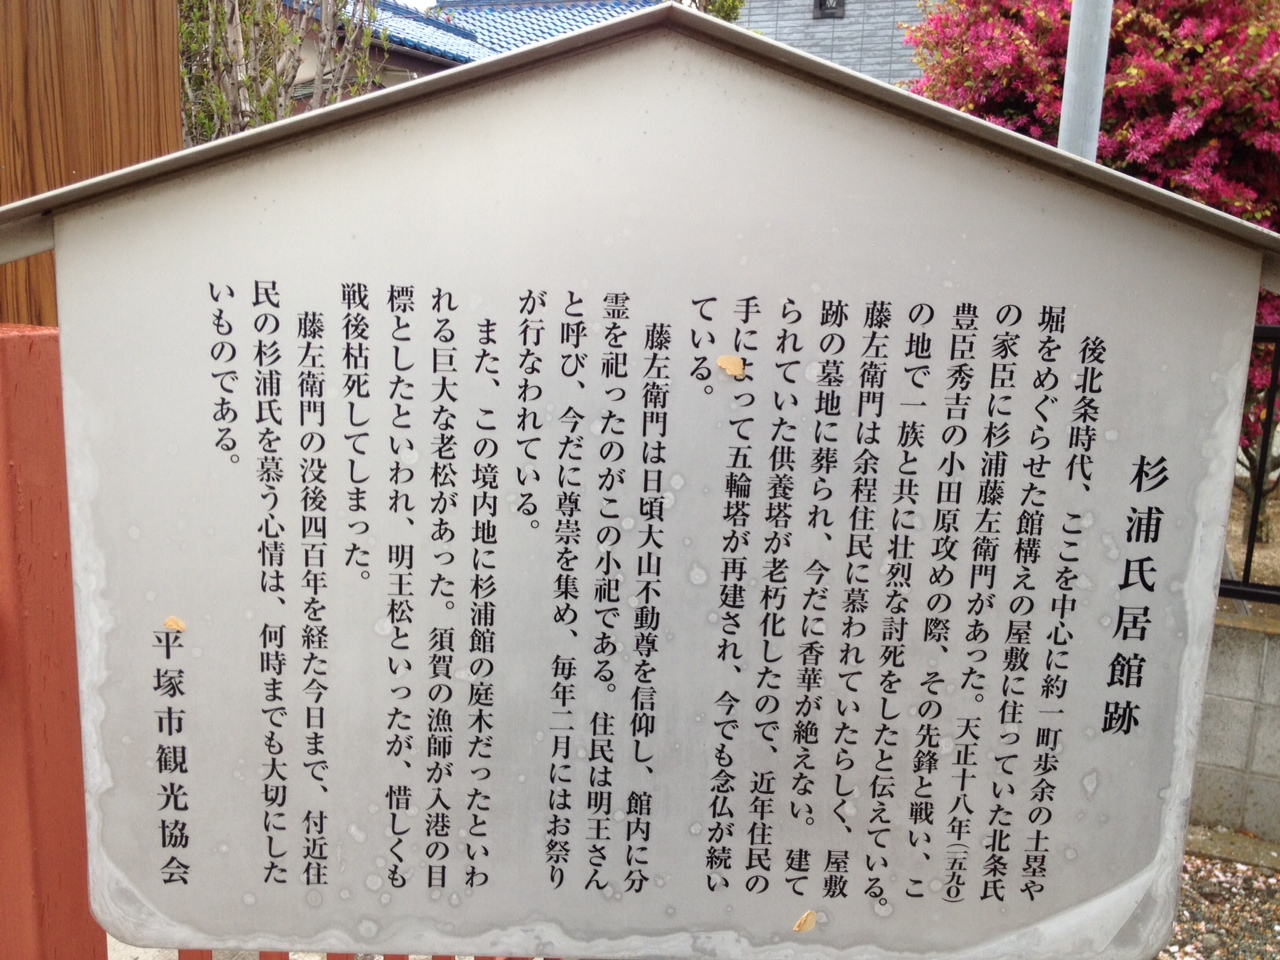 杉浦氏居館跡
後北条時代、ここを中心に約一町歩余の土塁や
堀をめぐらせた館構えの屋敷に住っていた北条氏
の家臣に杉浦藤左衛門があった。天正十八年(一五九〇)
豊臣秀吉の小田原攻めの際、その先鋒と戦い、こ
の地で一族と共に壮烈な討死をしたと伝えている。
藤左衛門は余程住民に慕われていたらしく、屋敷
跡の墓地に葬られ、今だに香華が絶えない。建て
られていた供養塔が老朽化したので、近年住民の
手によって五輪塔が再建され、今でも念仏が続い
ている。
藤左衛門は日頃大山不動尊を信仰し、館内に分
霊を祀ったのがこの小祀である。住民は明王さん
と呼び、今だに尊崇を集め、毎年二月にはお祭り
が行なわれている。
また、この境内地に杉浦館の庭木だったといわ
れる巨大な老松があった。須賀の漁師が入港の目
標としたといわれ、明王松といったが、惜しくも
戦後枯死してしまった。
藤左衛門の没後四百年を経た今日まで、付近住
民の杉浦氏を慕う心情は、何時までも大切にした
いものである。
平塚市観光協会